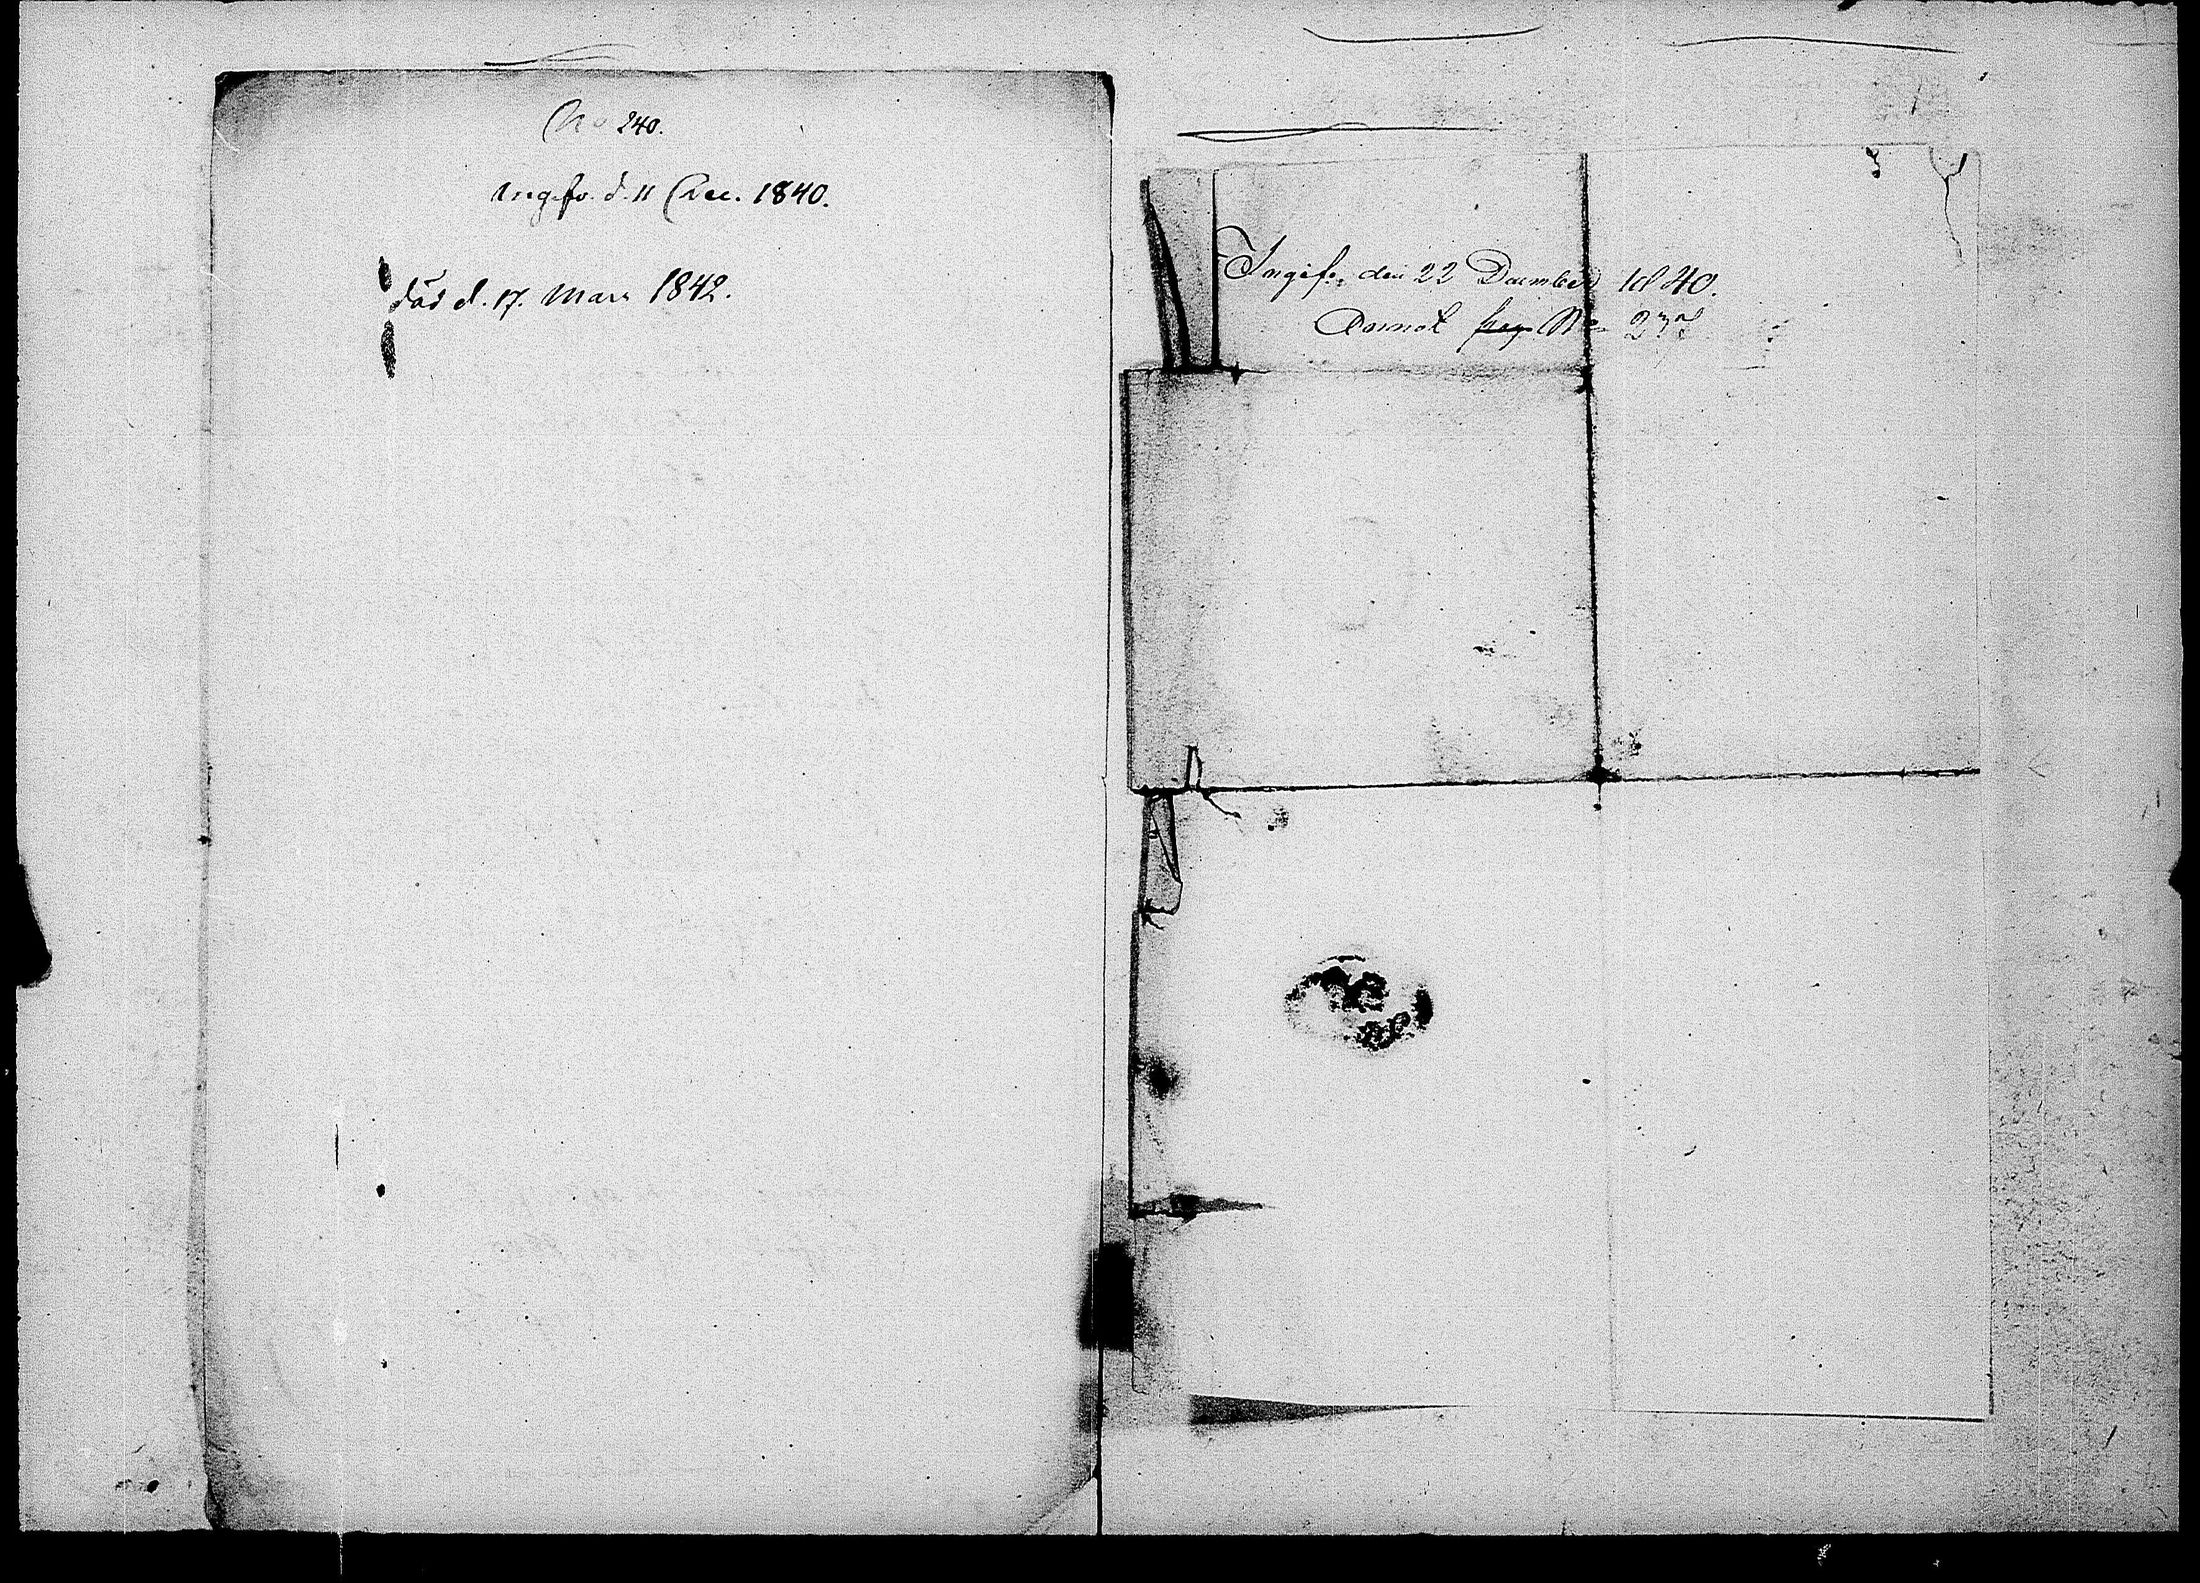 No 240.
Ingifv. d. 11 Dec. 1840.
död d. 17. Mars 1842.
Ingifv. den 22 December 1840.
No 237